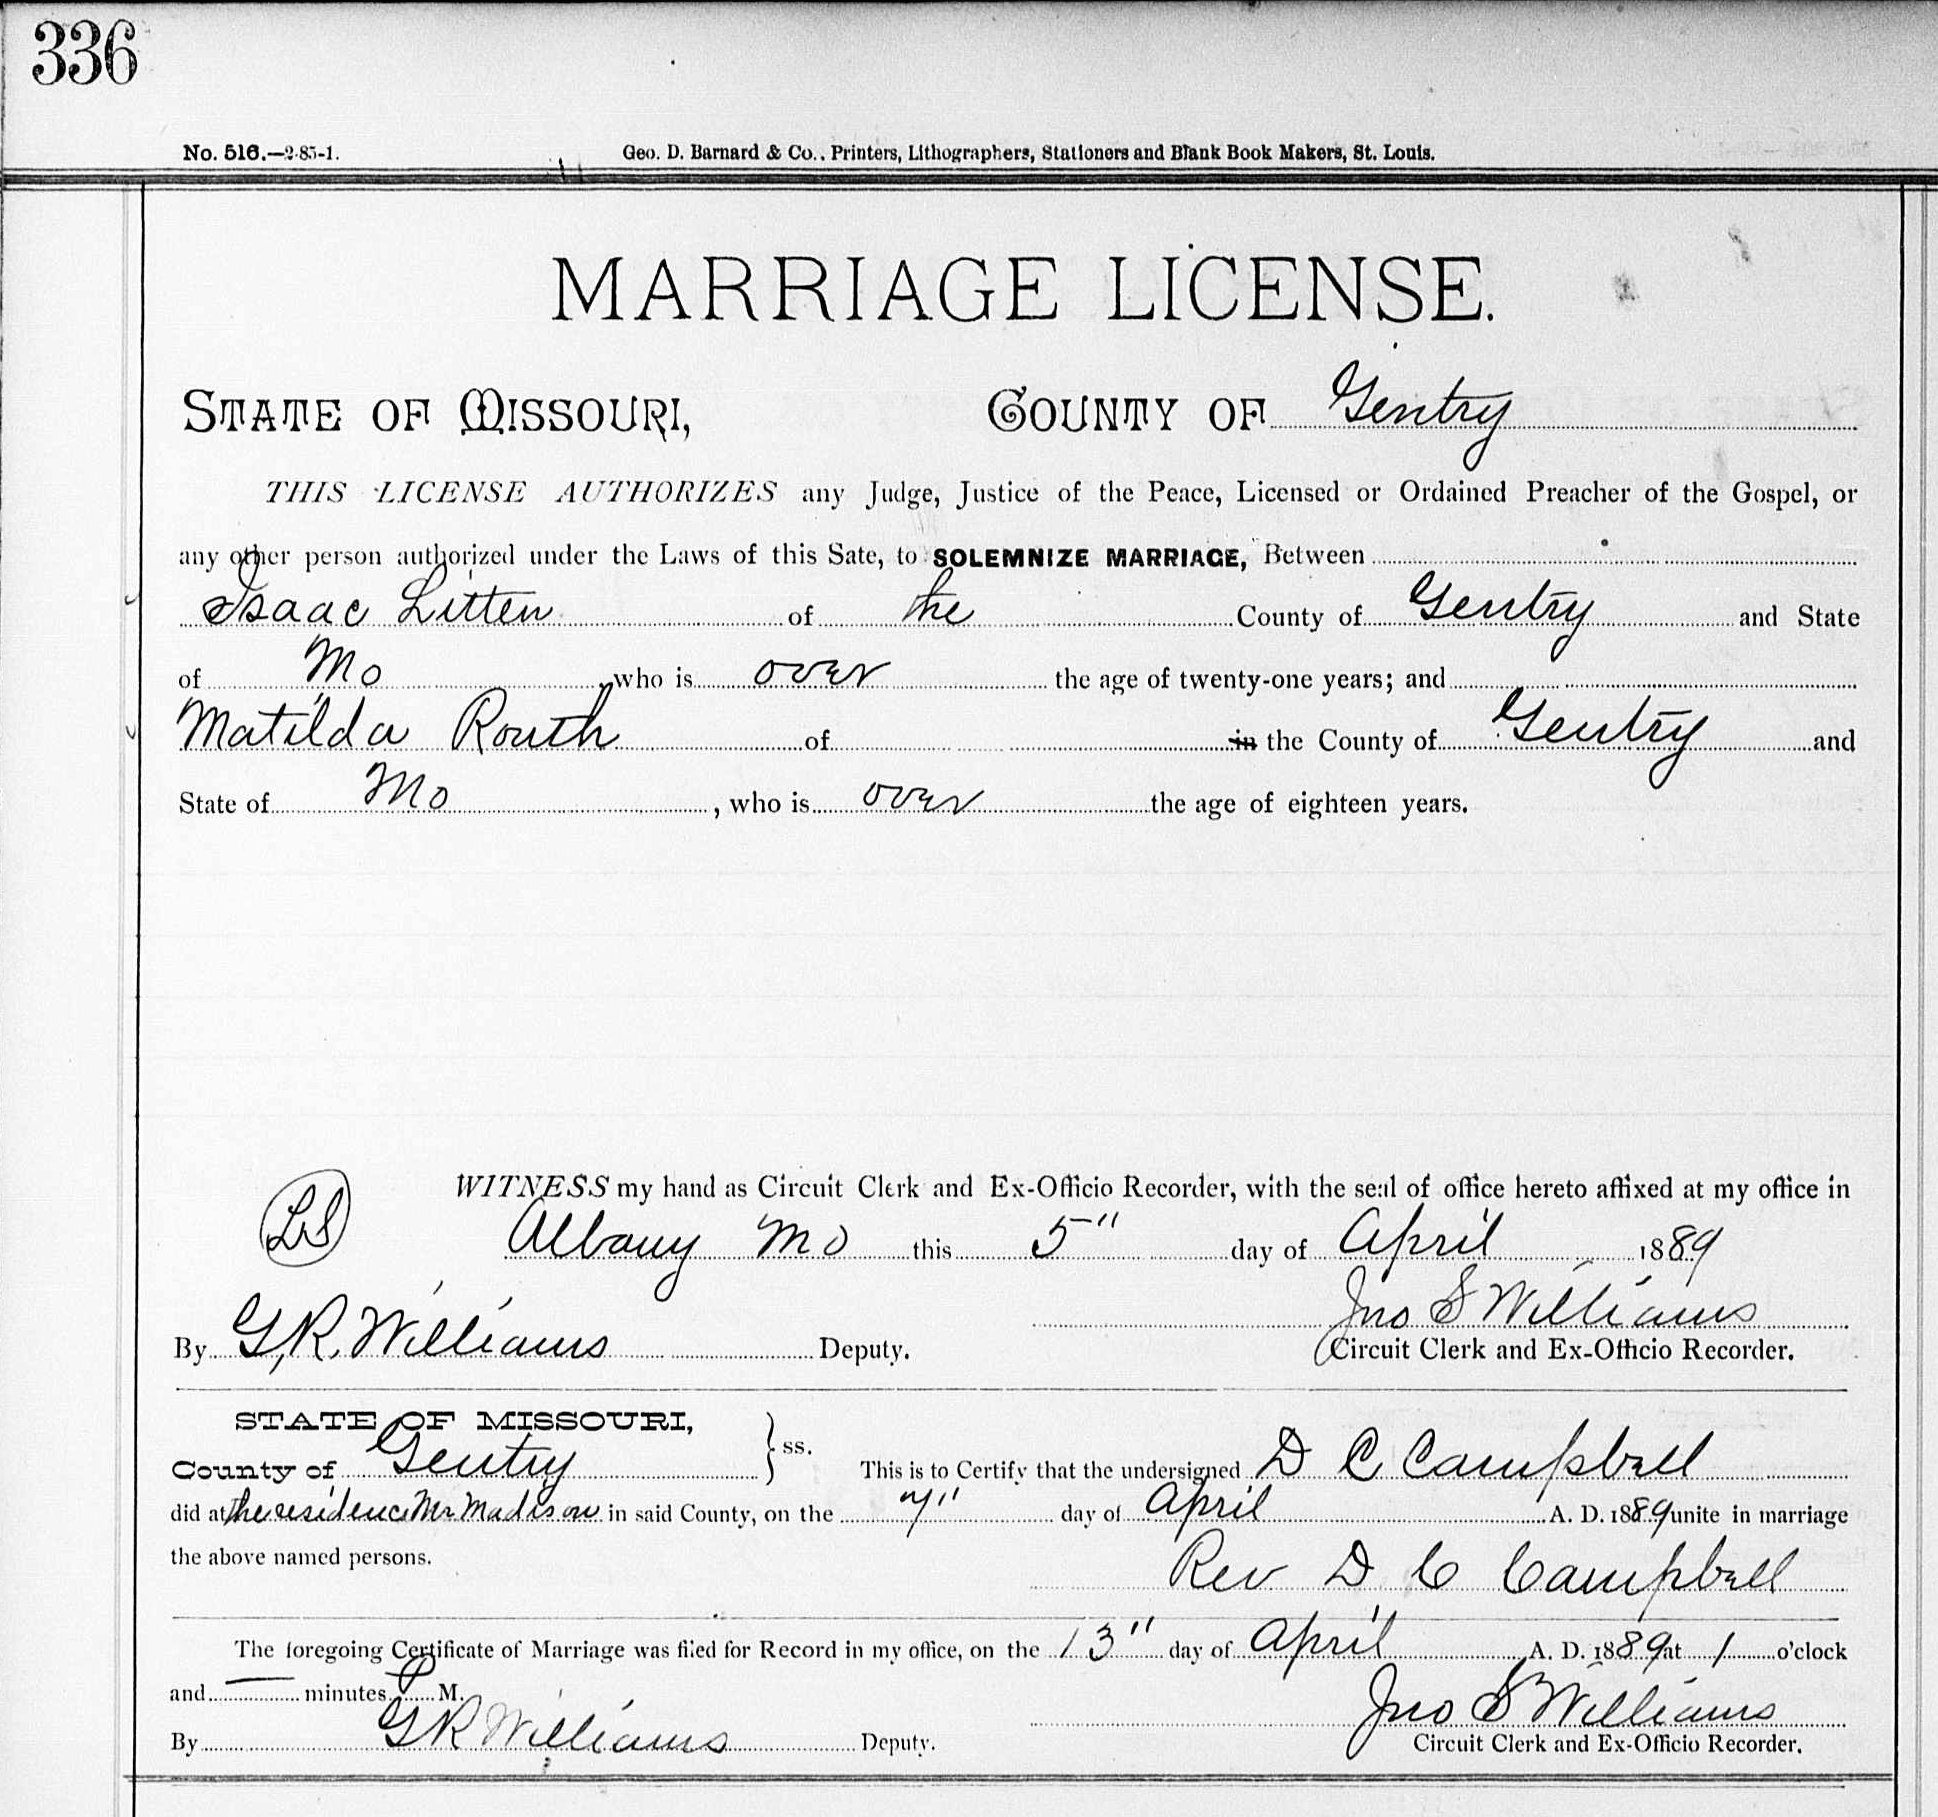 336
No. 516.—2-85-1. Geo. D. Barnard & Co., Printers, Lithographers, Stationers and Blank Book Makers, St. Louis.
MARRIAGE LICENSE.
STATE OF MISSOURI, COUNTY OF Gentry
THIS LICENSE AUTHORIZES any Judge, Justice of the Peace, Licensed or Ordained Preacher of the Gospel, or
any other person authorized under the Laws of this Sate, to SOLEMNIZE MARRIAGE, Between
Isaac Litten of the County of Gentry and State
of Mo who is over the age of twenty-one years; and
Matilda Routh of in the County of Gentry and
State of Mo, who is over the age of eighteen years.
WITNESS my hand as Circuit Clerk and Ex-Officio Recorder, with the seal of office hereto affixed at my office in
LS Albany Mo this 5" day of April 1889
Jno S Williams
By G, R, Williams Deputy. Circuit Clerk and Ex-Officio Recorder.
STATE OF MISSOURI, } ss.
County of Gentry This is to Certify that the undersigned D C Campbell
did at the residence Mr Madison in said County, on the 7" day of April A. D. 1889 unite in marriage
the above named persons. Rev D C Campbell
The foregoing Certificate of Marriage was filed for Record in my office, on the 13" day of April A. D. 1889 at 1 o'clock
and — minutes P M. Jno S Williams
By G R Williams Deputy. Circuit Clerk and Ex-Officio Recorder.